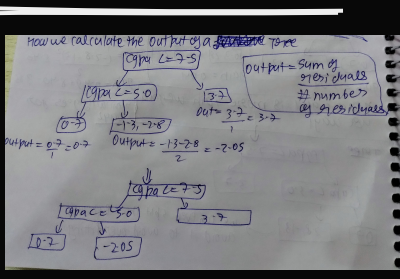 How we calculate the output of a Tree
Cgpa <= 7.5
Output = Sum of
residuals
# number
of residuals
Cgpa <= 5.0
3.7
Out = 3.7 / 1 = 3.7
0.7
-1.3, -2.8
Output = 0.7 / 1 = 0.7
Output = -1.3-2.8 / 2 = -2.05
Cgpa <= 7.5
Cgpa <= 5.0
3.7
0.7
-2.05